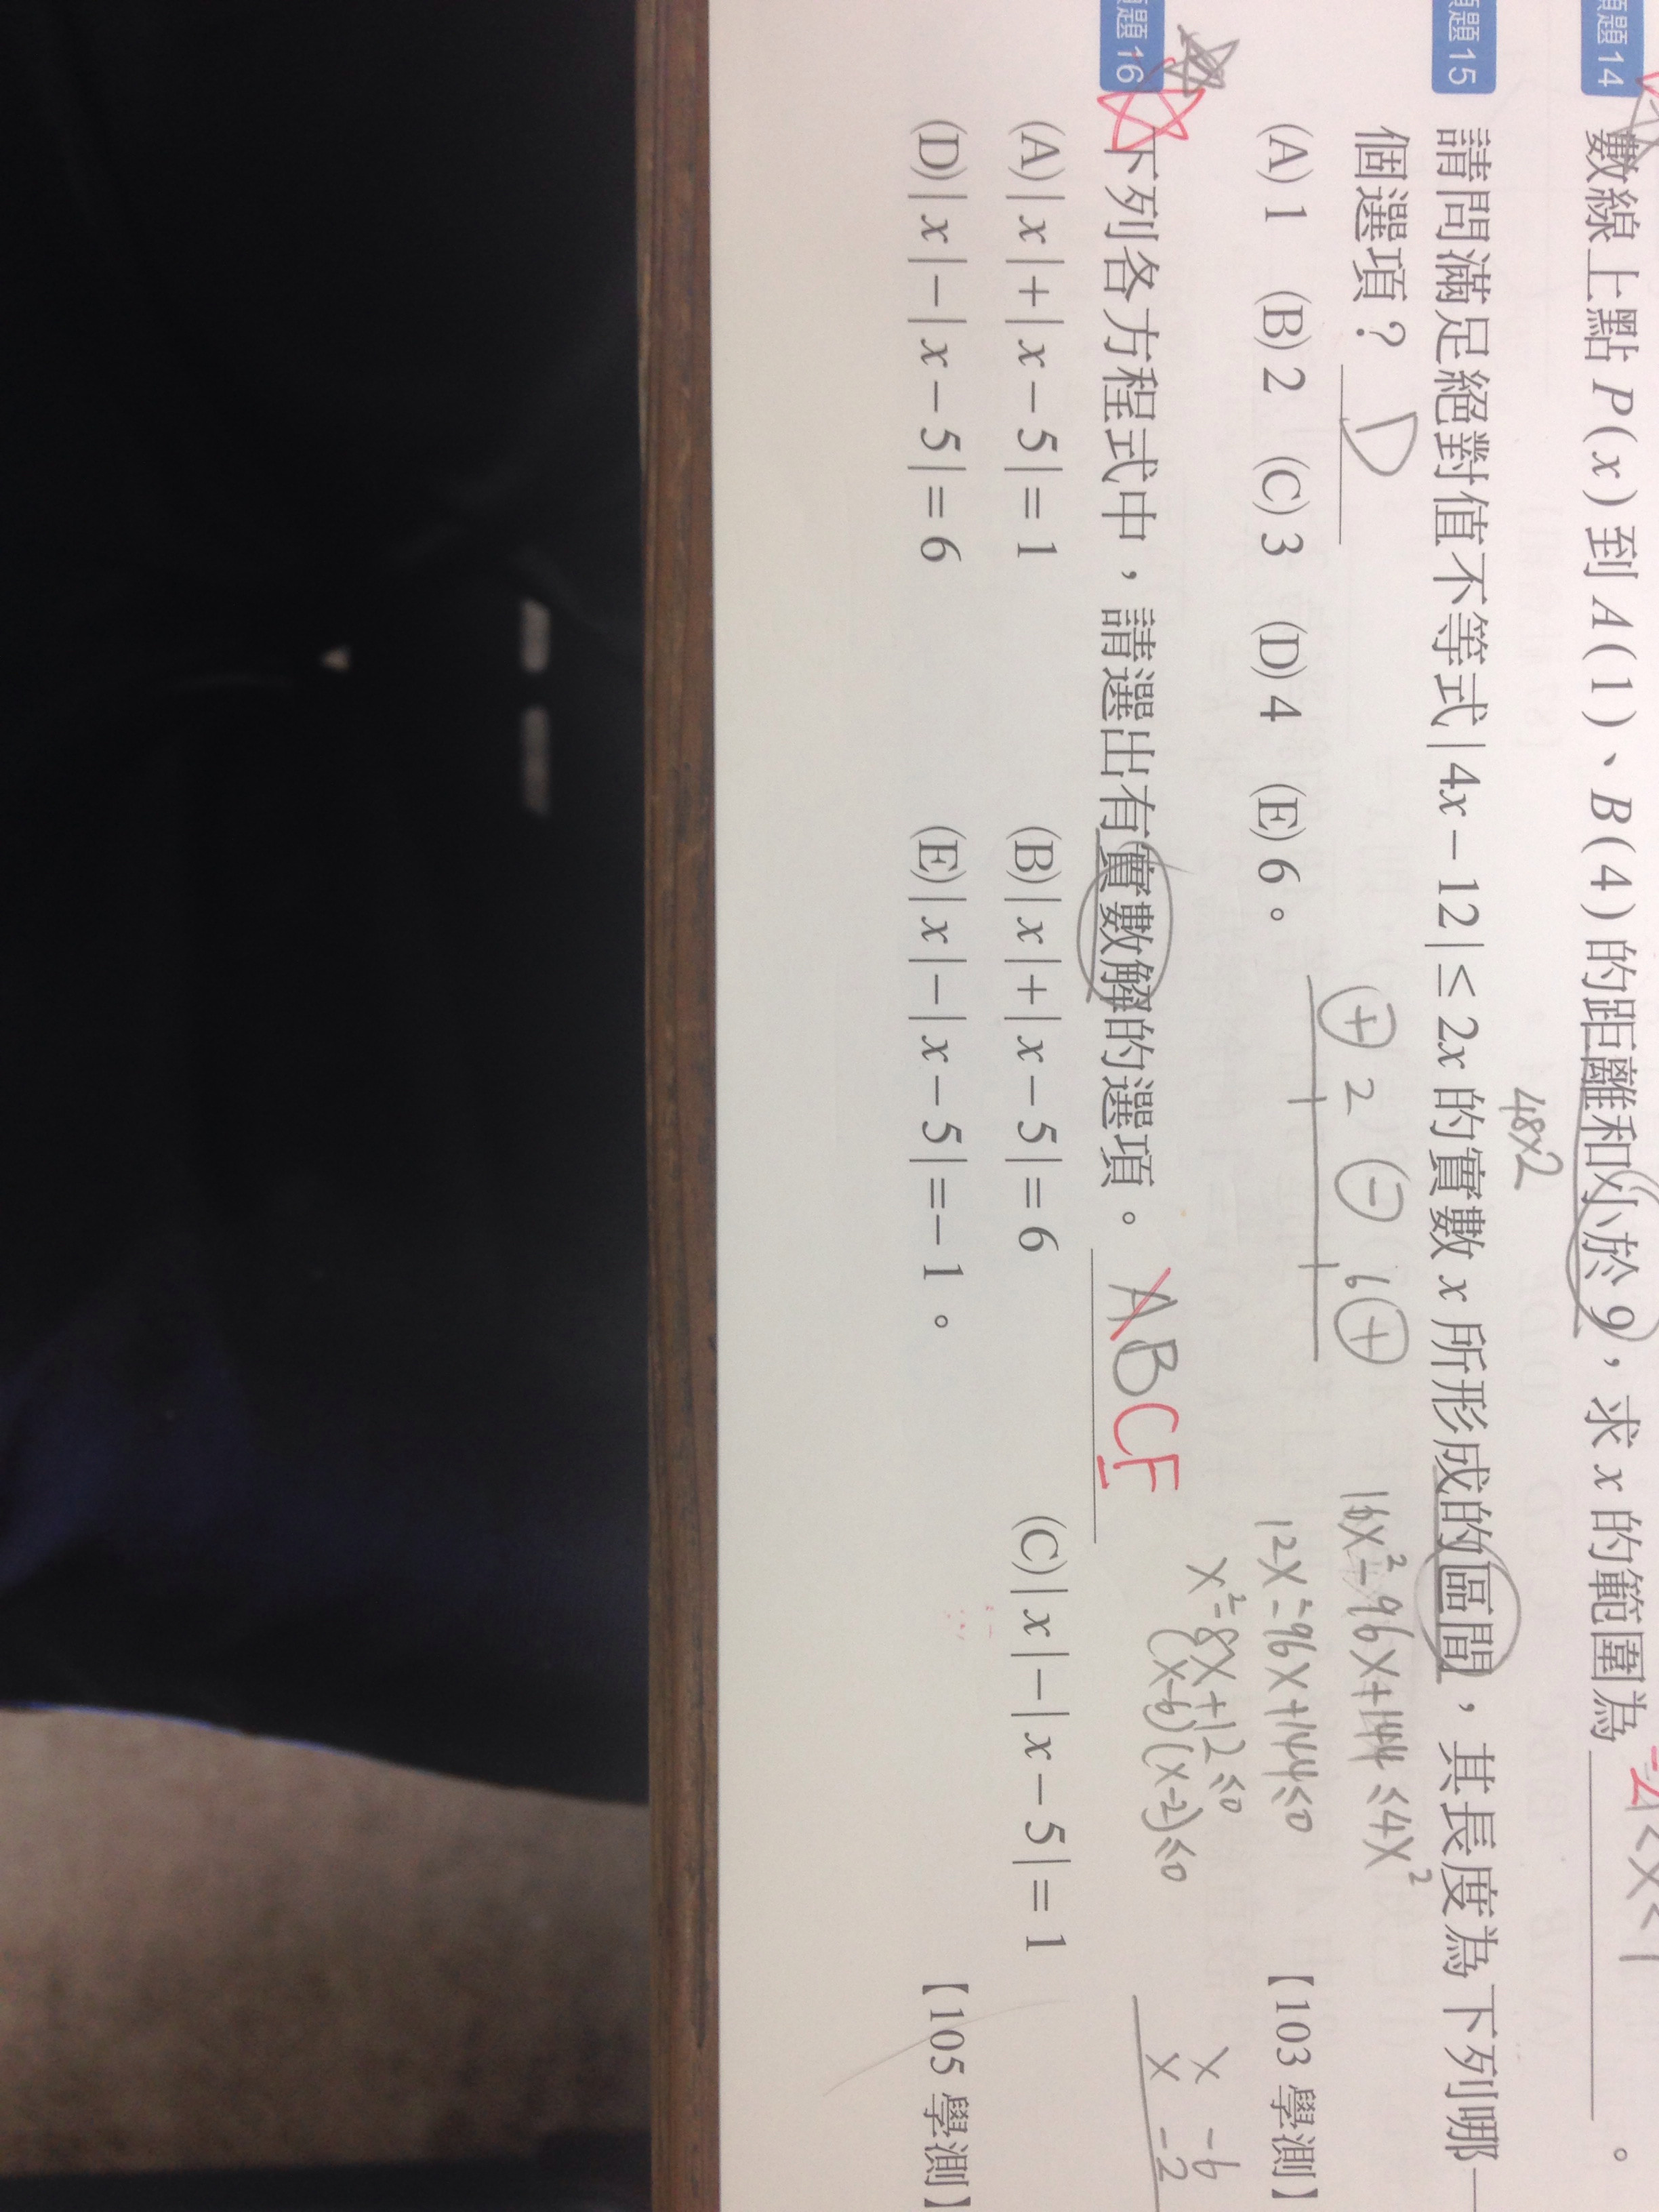 題 14 數線上點 P(x) 到 A(1)、B(4) 的距離和小於 9，求 x 的範圍為 。
-2<x<
48x2
題 15 請問滿足絕對值不等式 |4x-12|≤2x 的實數 x 所形成的區間，其長度為下列哪一
個選項？ D
(A) 1 (B) 2 (C) 3 (D) 4 (E) 6。
【103 學測】
+ 2 - 6 +
16x²-96x+144≤4x²
12x²-96x+144≤0
x²-8x+12≤0
(x-6)(x-2)≤0
x -6
x -2
題 16 下列各方程式中，請選出有實數解的選項。 ABCE
(A)|x|+|x-5|=1 (B)|x|+|x-5|=6 (C)|x|-|x-5|=1
(D)|x|-|x-5|=6 (E)|x|-|x-5|=-1。
【105 學測】